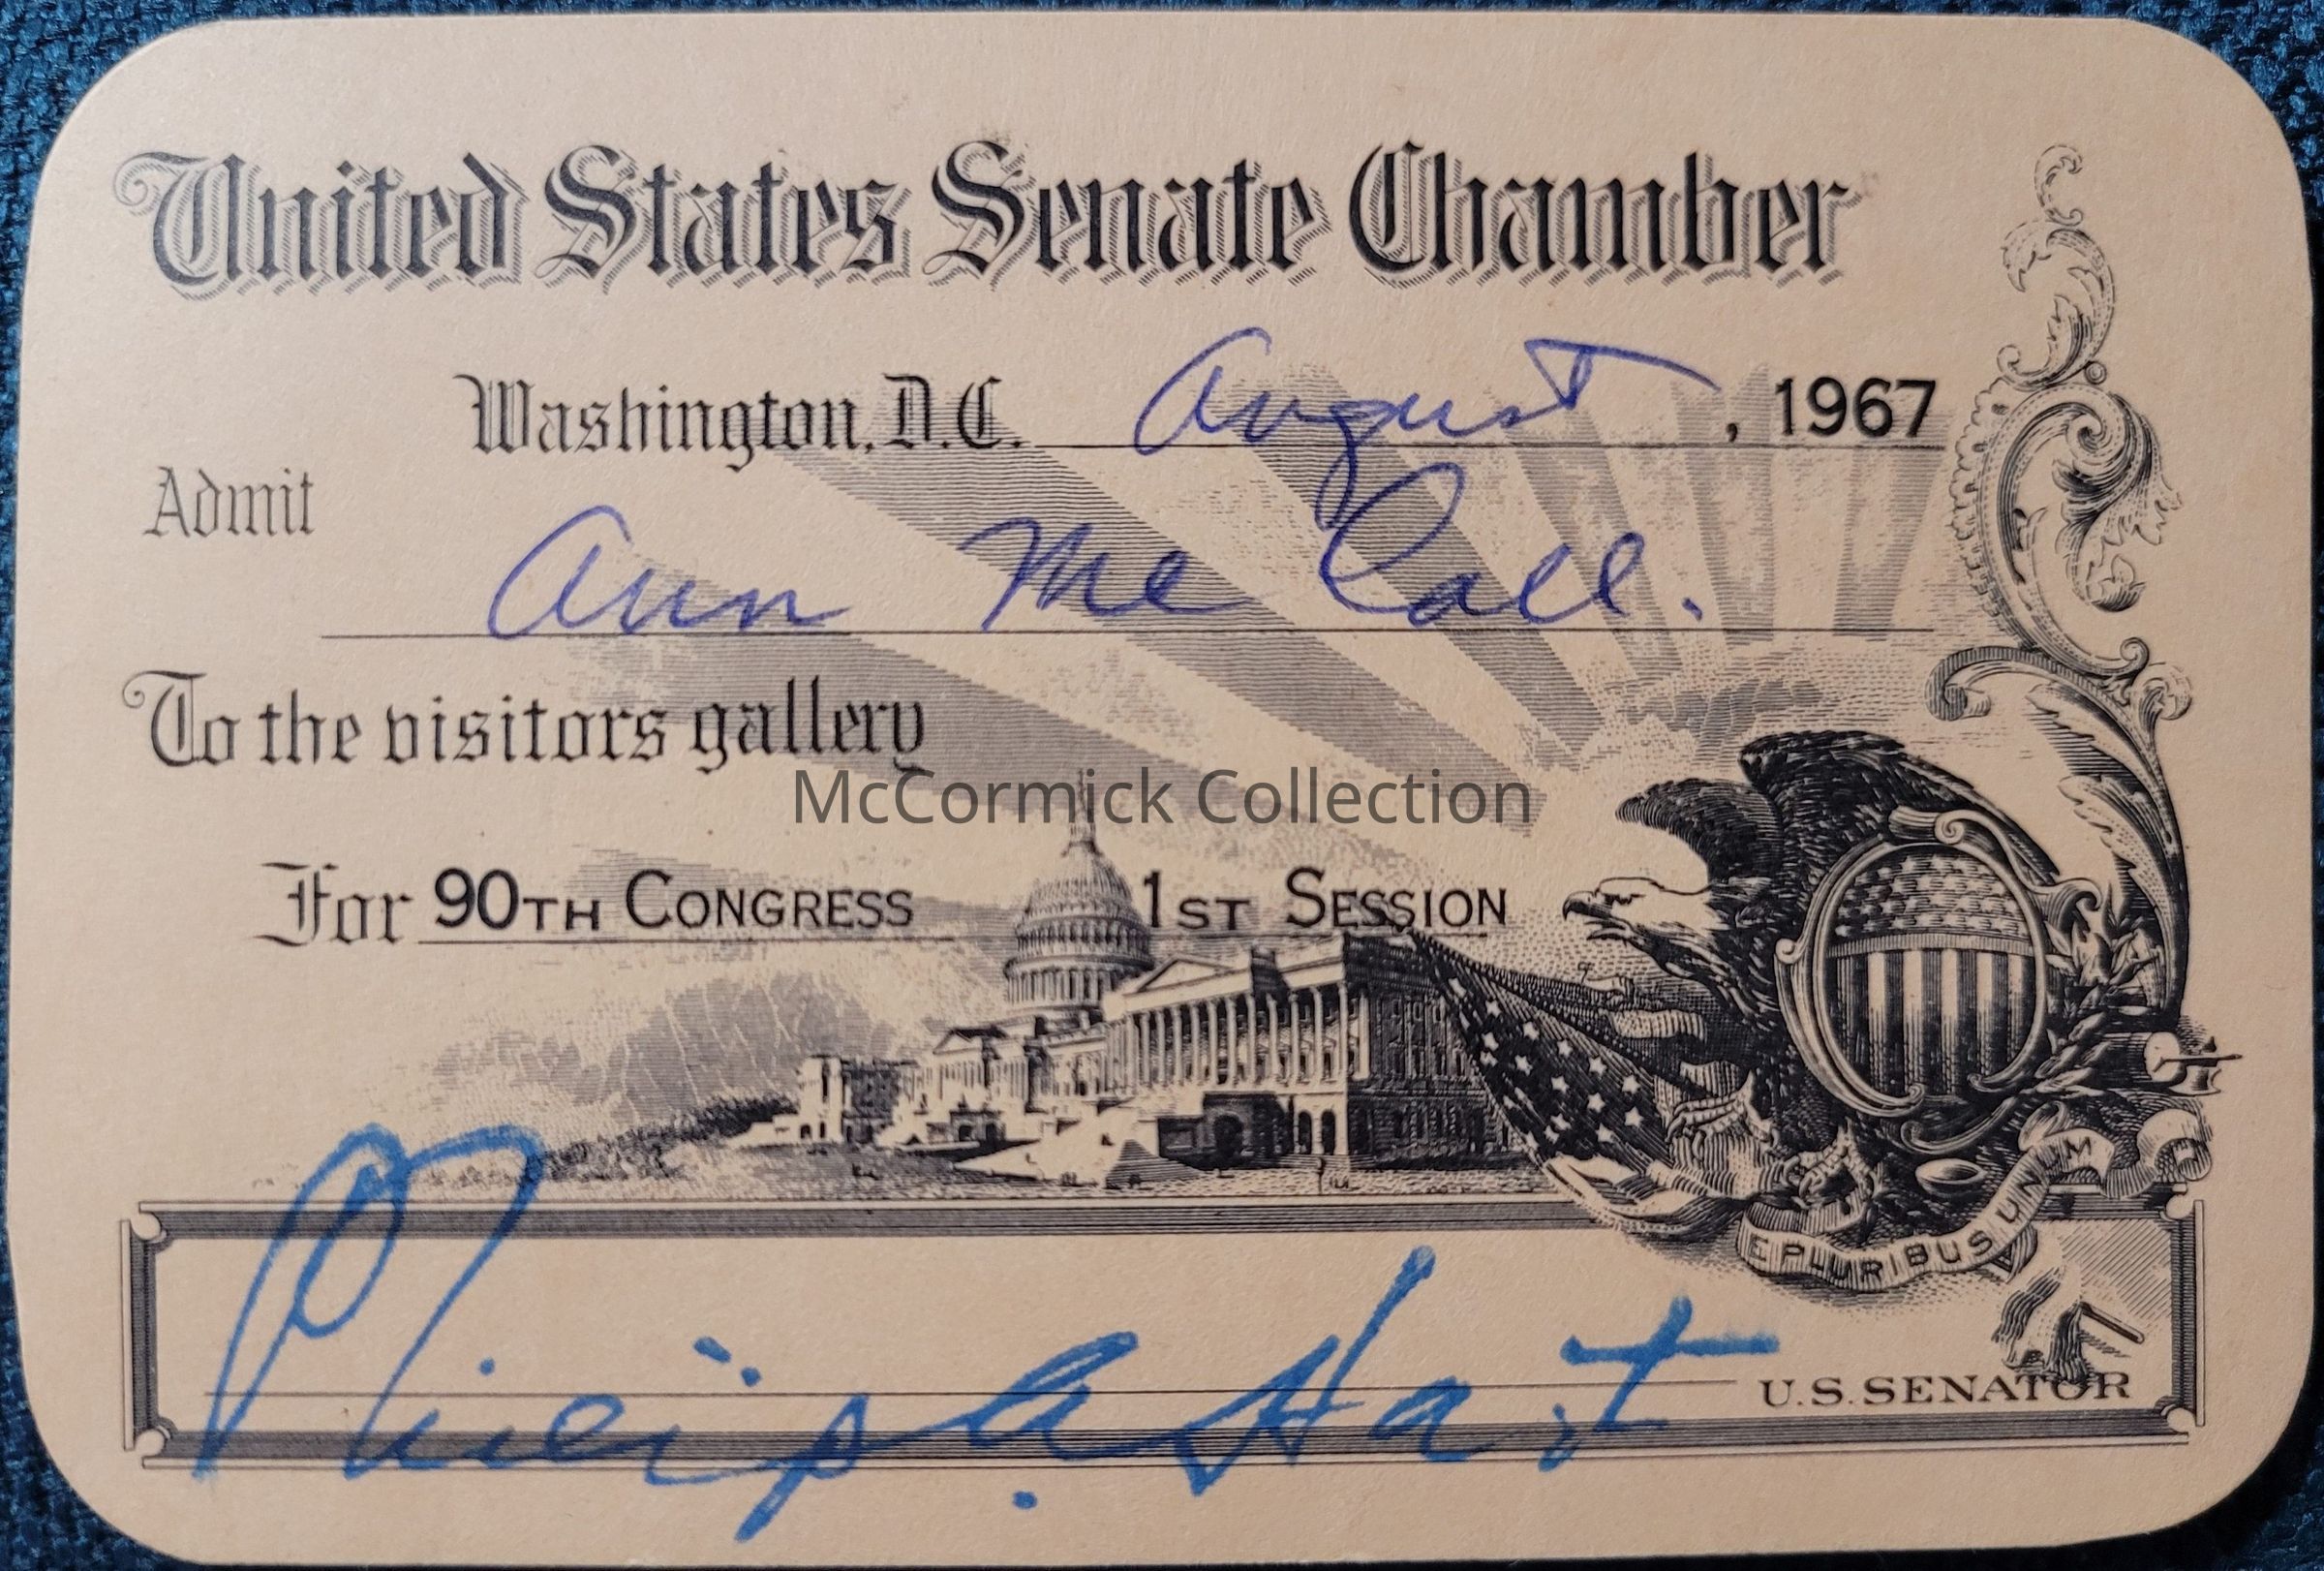 United States Senate Chamber
Washington, D.C. August, 1967
Admit
Ann McCall.
To the visitors gallery
McCormick Collection
For 90TH CONGRESS 1ST SESSION
E PLURIBUS UNUM
Philip A. Hart U.S. SENATOR